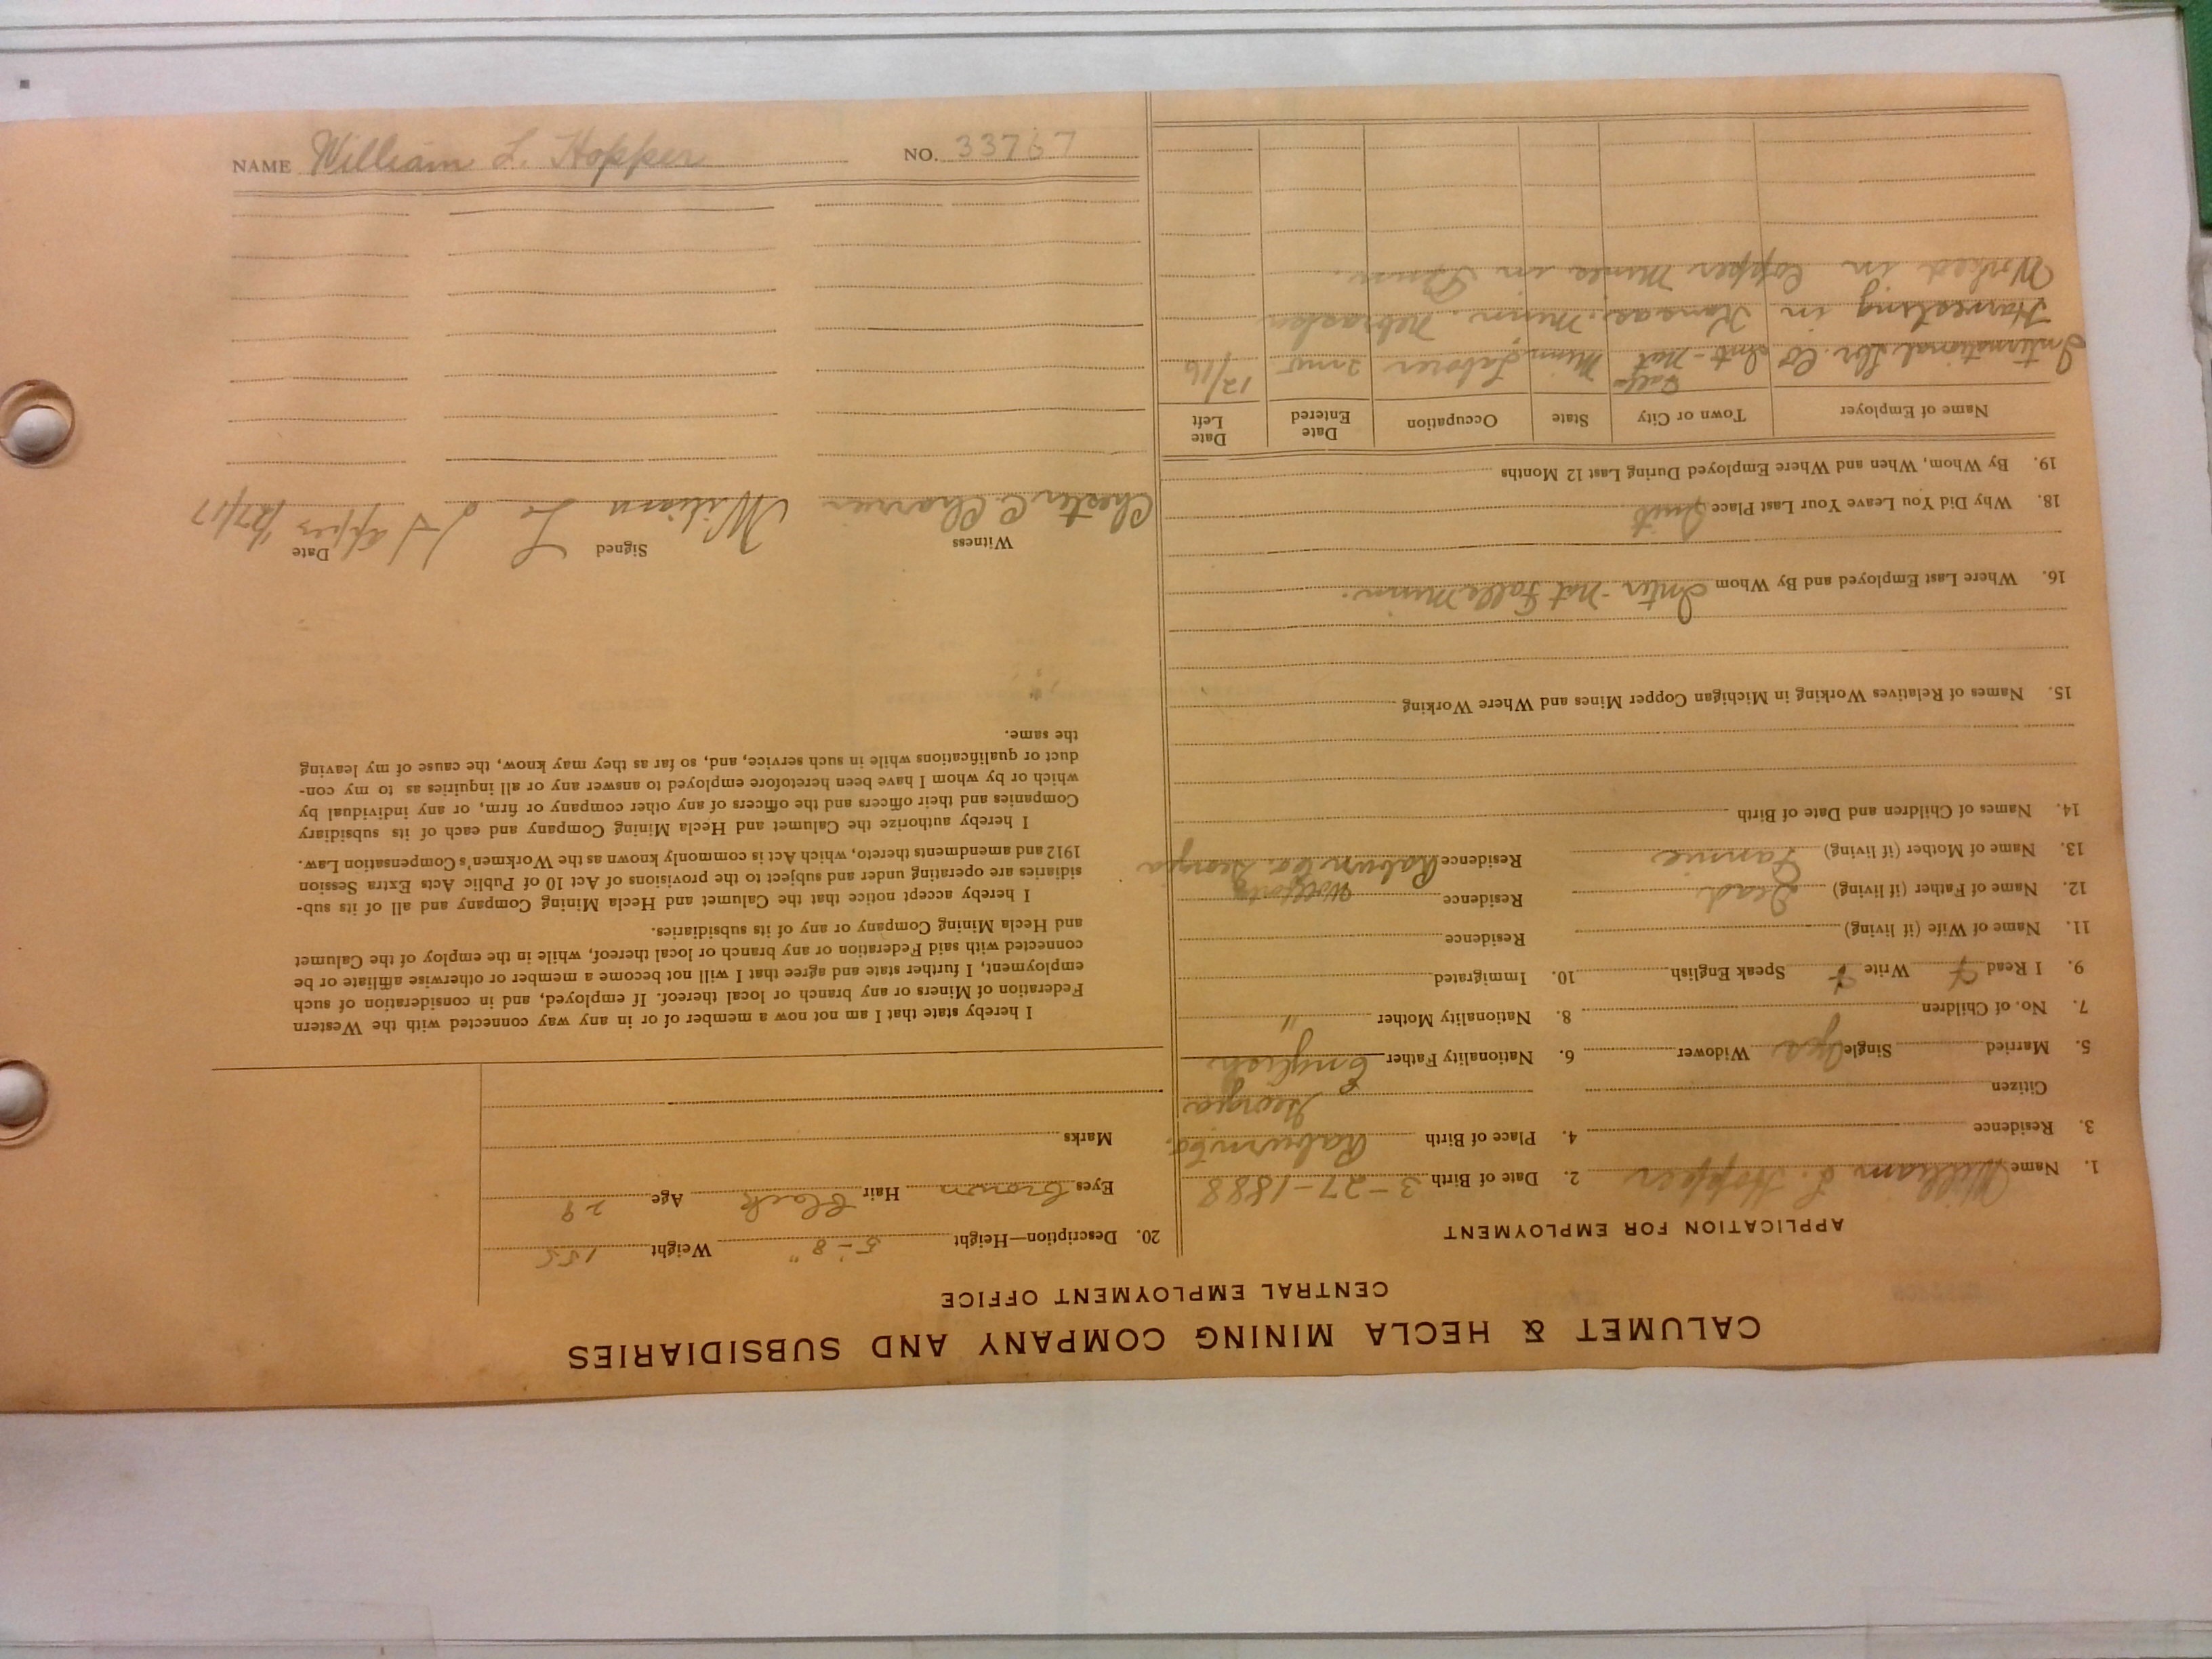 CALUMET & HECLA MINING COMPANY AND SUBSIDIARIES
CENTRAL EMPLOYMENT OFFICE
APPLICATION FOR EMPLOYMENT
1. Name William L. Hopper 2. Date of Birth 3-27-1888
3. Residence 4. Place of Birth Raburn Co.
Georgia
Citizen
5. Married Single yes Widower 6. Nationality Father English
7. No. of Children 8. Nationality Mother "
9. I Read Write Speak English 10. Immigrated
11. Name of Wife (if living) Residence
12. Name of Father (if living) Dead Residence
13. Name of Mother (if living) Fannie Residence Raburn Co. Georgia
14. Names of Children and Date of Birth
15. Names of Relatives Working in Michigan Copper Mines and Where Working
16. Where Last Employed and By Whom Inter-Nat Falls Minn.
18. Why Did You Leave Your Last Place Quit
19. By Whom, When and Where Employed During Last 12 Months
Name of Employer Town or City State Occupation Date Entered Date Left
International Lbr. Co Int-Nat Falls Minn Laborer 2 mos 12/16
Harvesting in Kansas, Minn. Nebraska
Worked in Copper Mines in Tenn.
20. Description—Height 5-8" Weight 155
Eyes brown Hair black Age 29
Marks
I hereby state that I am not now a member of or in any way connected with the Western
Federation of Miners or any branch or local thereof. If employed, and in consideration of such
employment, I further state and agree that I will not become a member or otherwise affiliate or be
connected with said Federation or any branch or local thereof, while in the employ of the Calumet
and Hecla Mining Company or any of its subsidiaries.
I hereby accept notice that the Calumet and Hecla Mining Company and all of its sub-
sidiaries are operating under and subject to the provisions of Act 10 of Public Acts Extra Session
1912 and amendments thereto, which Act is commonly known as the Workmen's Compensation Law.
I hereby authorize the Calumet and Hecla Mining Company and each of its subsidiary
Companies and their officers and the officers of any other company or firm, or any individual by
which or by whom I have been heretofore employed to answer any or all inquiries as to my con-
duct or qualifications while in such service, and, so far as they may know, the cause of my leaving
the same.
Witness Signed Date
Chester C. William L Hopper 1/27/17
NAME William L. Hopper NO. 33767